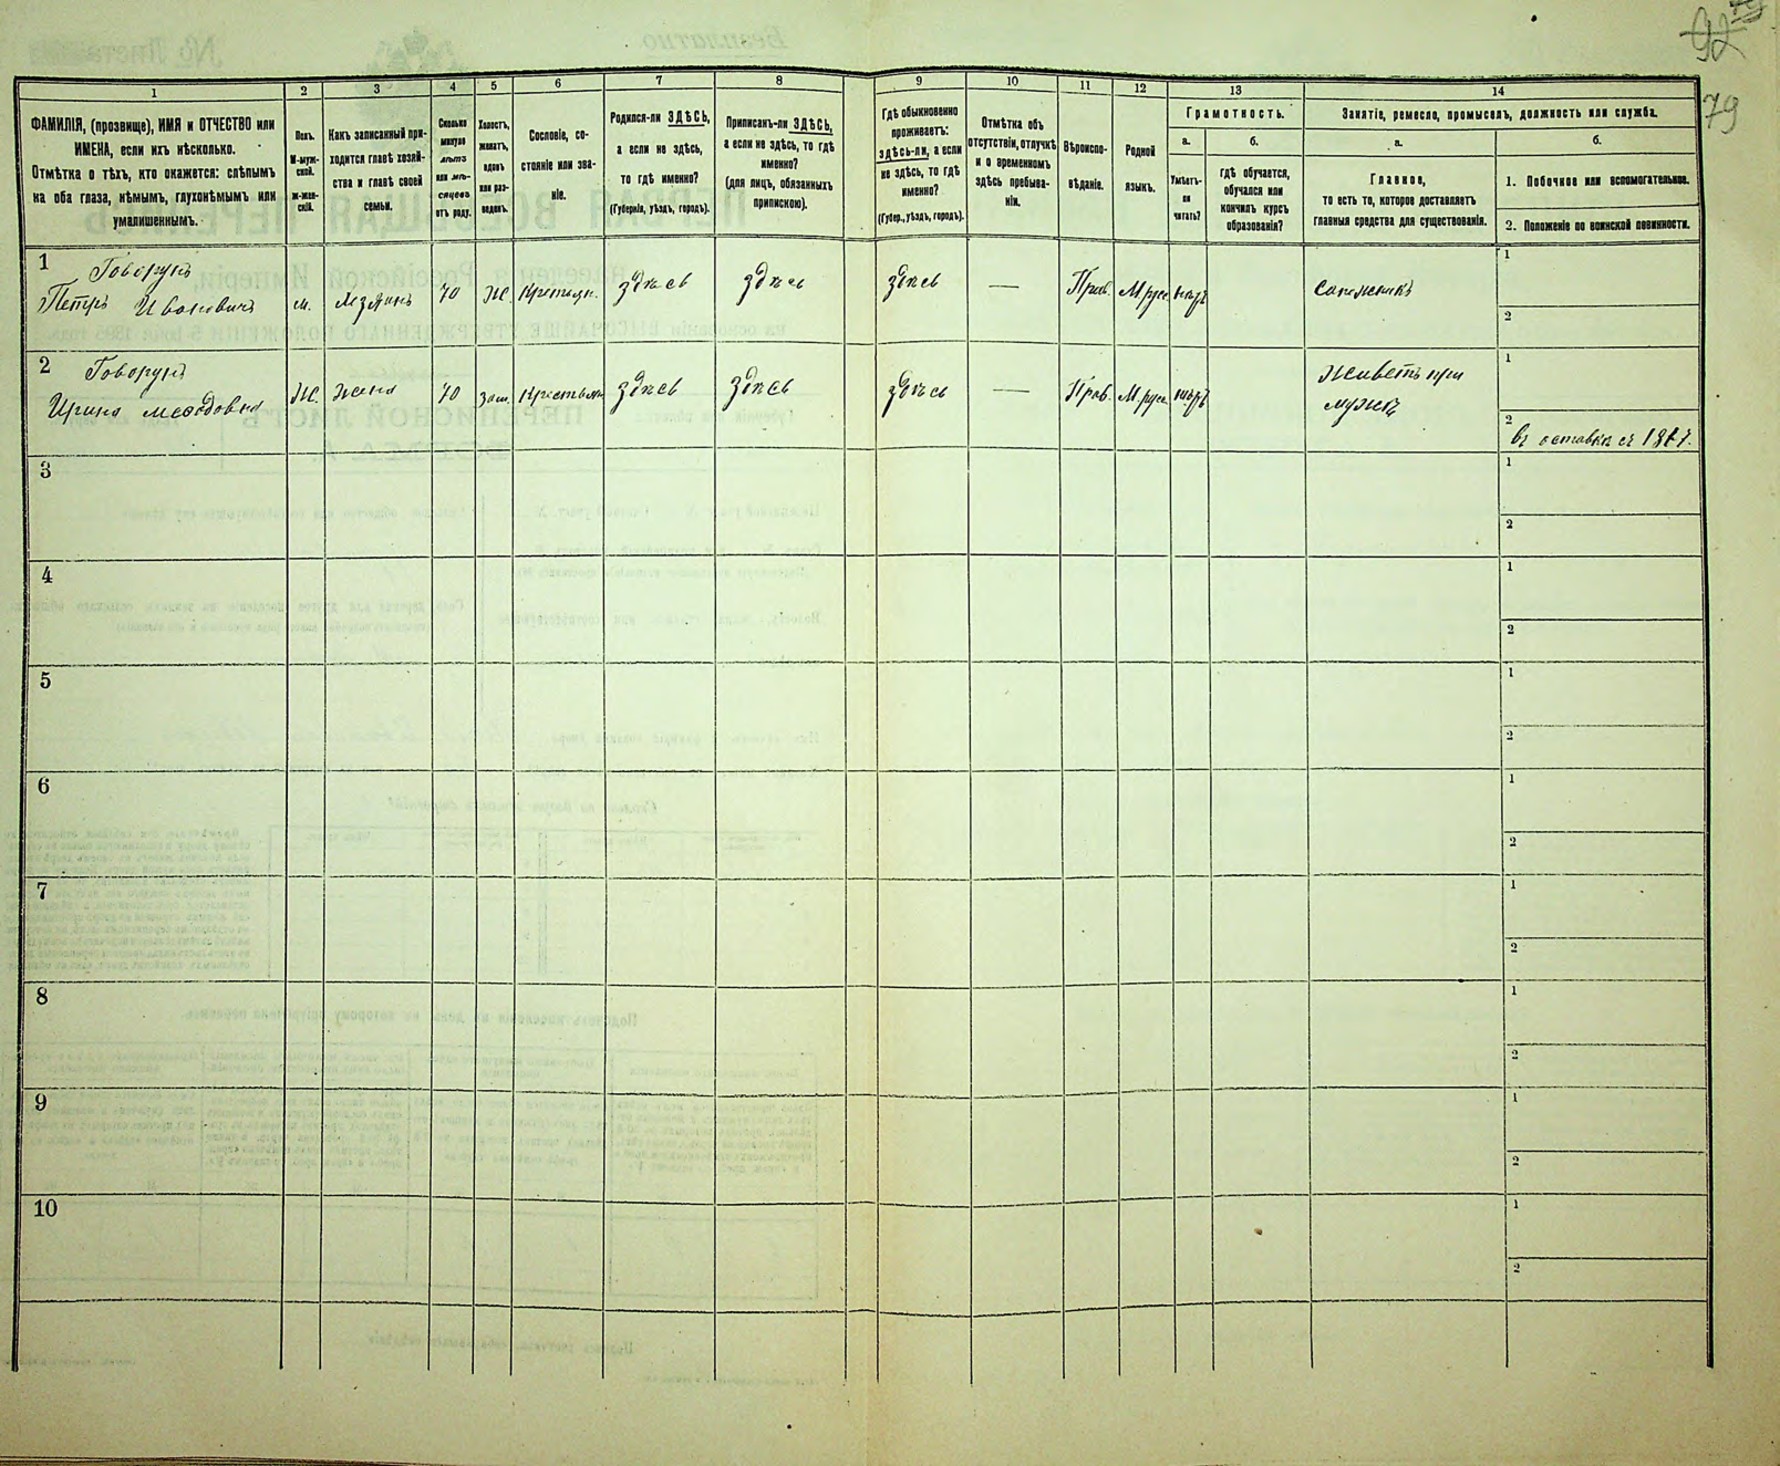 92
79
1
2
3
4
5
6
7
8
9
10
11
12
13
14
ФАМИЛІЯ, (прозвище), ИМЯ и ОТЧЕСТВО или
ИМЕНА, если ихъ нѣсколько.
Отмѣтка о тѣхъ, кто окажется: слѣпымъ
на оба глаза, нѣмымъ, глухонѣмымъ или
умалишеннымъ.
Полъ.
М-муж-
ской.
Ж-жен-
скій.
Какъ записанный при-
ходится главѣ хозяй-
ства и главѣ своей
семьи.
Сколько
минуло
лѣтъ
или мѣ-
сяцевъ
отъ роду.
Холостъ,
женатъ,
вдовъ
или раз-
веденъ.
Сословіе, со-
стояніе или зва-
ніе.
Родился-ли ЗДѢСЬ,
а если не здѣсь,
то гдѣ именно?
(Губернія, уѣздъ, городъ).
Приписанъ-ли ЗДѢСЬ,
а если не здѣсь, то гдѣ
именно?
(для лицъ, обязанныхъ
припискою).
Гдѣ обыкновенно
проживаетъ:
здѣсь-ли, а если
не здѣсь, то гдѣ
именно?
(Губер., уѣздъ, городъ).
Отмѣтка объ
отсутствіи, отлучкѣ
и о временномъ
здѣсь пребыва-
ніи.
Вѣроиспо-
вѣданіе.
Родной
языкъ.
Грамотность.
а.
б.
Умѣетъ-
ли
читать?
гдѣ обучается,
обучался или
кончилъ курсъ
образованія?
Занятіе, ремесло, промыселъ, должность или служба.
а.
б.
Главное,
то есть то, которое доставляетъ
главныя средства для существованія.
1. Побочное или вспомогательное.
2. Положеніе по воинской повинности.
1
Говорунъ
Петръ Ивановичъ
м.
70
Ж.
Крестьян.
здѣсь
здѣсь
здѣсь
—
Прав.
М.рус.
нѣтъ
Сапожникъ
1
2
2
Говорунъ
Ирина
Ж.
жена
70
зам.
Крестьян.
здѣсь
здѣсь
здѣсь
—
Прав.
М.рус.
нѣтъ
Живетъ при
мужѣ
1
2
3
1
2
4
1
2
5
1
2
6
1
2
7
1
2
8
1
2
9
1
2
10
1
2